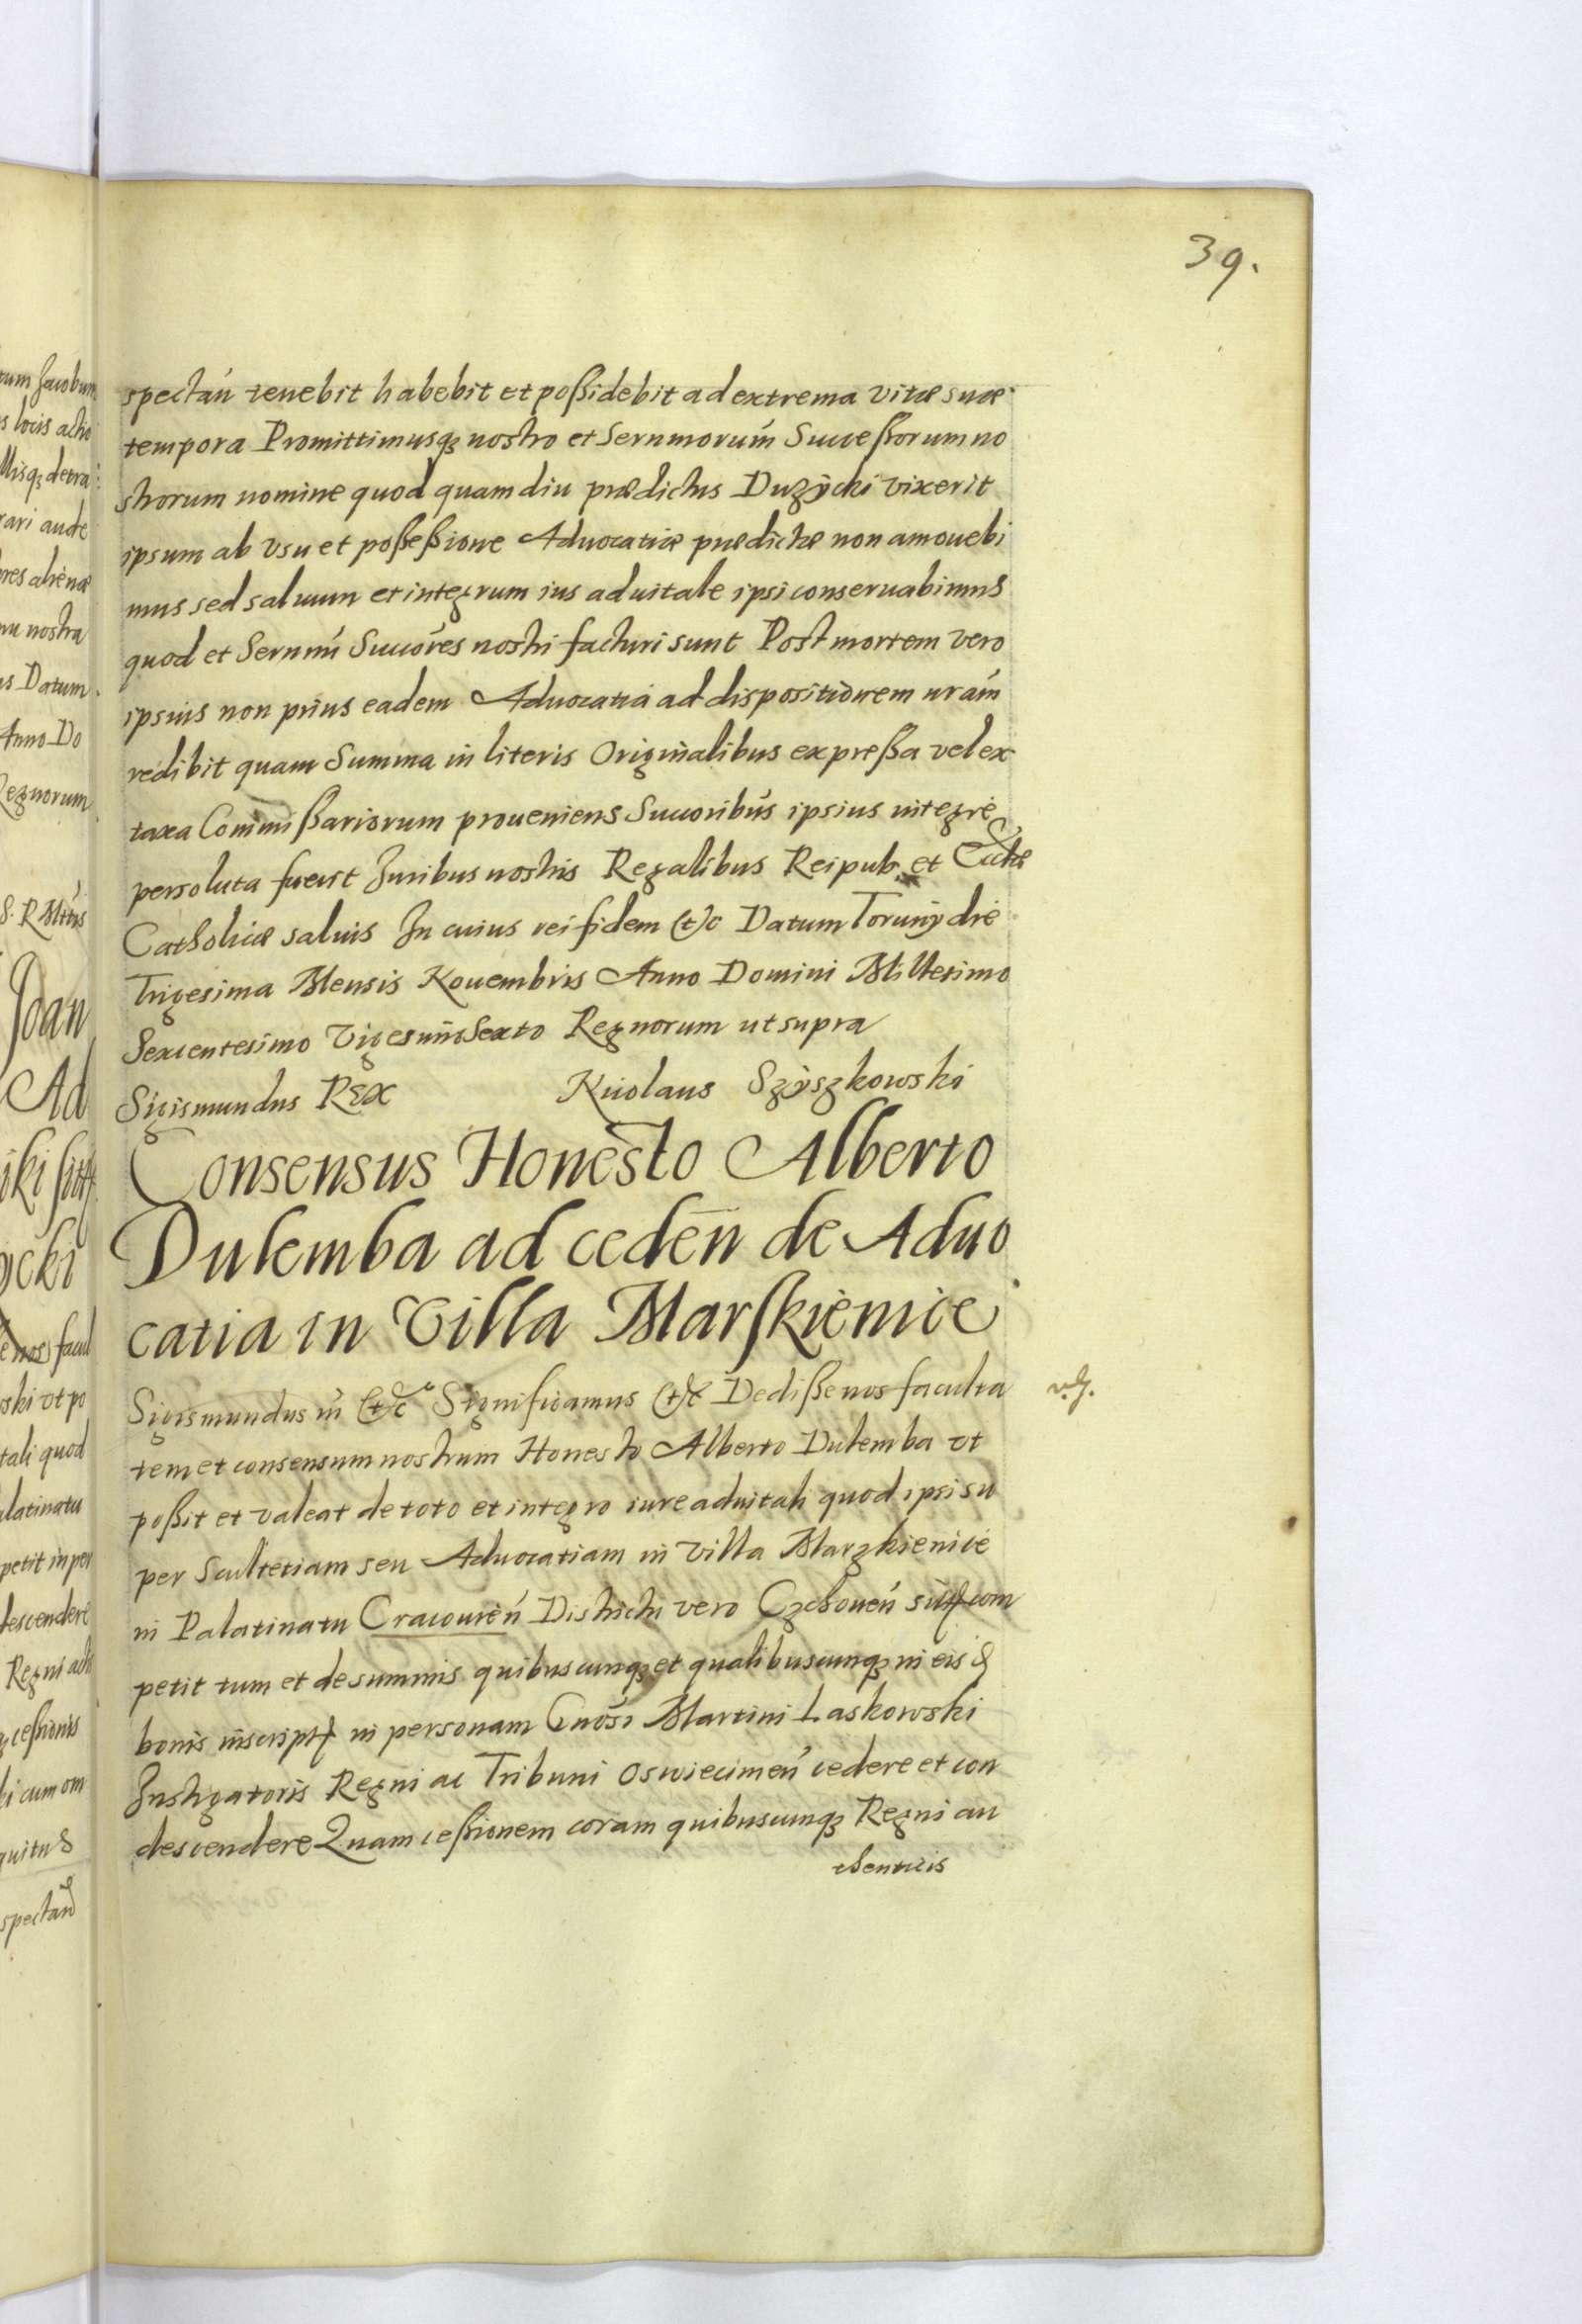 39.
spectań tenebit habebit et poßidebit ad extrema vitæ suæ
tempora Promittimusq3 nostro et Sernmorum Succeßorum no
strorum nomine quod quam diu prædictus Duzÿcki vixerit
ipsum ab vsu et poßeßione Aduocatiæ prædictæ non amouebi
mus sed saluum et integrum ius aduitale ipsi conseruabimus
quod et Sernmi Succores nostri facturi sunt Post mortem vero
ipsius non prius eadem Aduocatia ad dispositionem nram
redibit quam Summa in literis Originalibus expreßa vel ex
taxa Commißariorum proueniens Succoribus ipsius integrè
persoluta fuerit Iuribus nostris Regalibus Reipub. et Eccliæ
Catholicæ saluis In cuius rei fidem etc Datum Torunÿ die
Trigesima Mensis Nouembris Anno Domini Millesimo
Sexcentesimo Vigesimo Sexto Regnorum ut supra
Sigismundus REX Nicolaus Szÿszkowski
Consensus Honesto Alberto
Dulemba ad ceden de Aduo
catia in Villa Marskienice
Sigismundus iii etc Significamus etc Dediße nos faculta
tem et consensum nostrum Honesto Alberto Dulemba vt
poßit et valeat de toto et integro iure aduitali quod ipsi su
per Scultetiam seu Aduocatiam in villa Marzkienice
in Palatinatu Cracouień Districtu vero Czchoueń sit com
petit tum et de summis quibuscunq3 et qualibuscunq3 in eisd
bonis inscript in personam Gnosi Martini Laskowski
Instigatoris Regni ac Tribuni Oswiecimeń cedere et con
descendere Quam ceßionem coram quibuscunq3 Regni au
thenticis